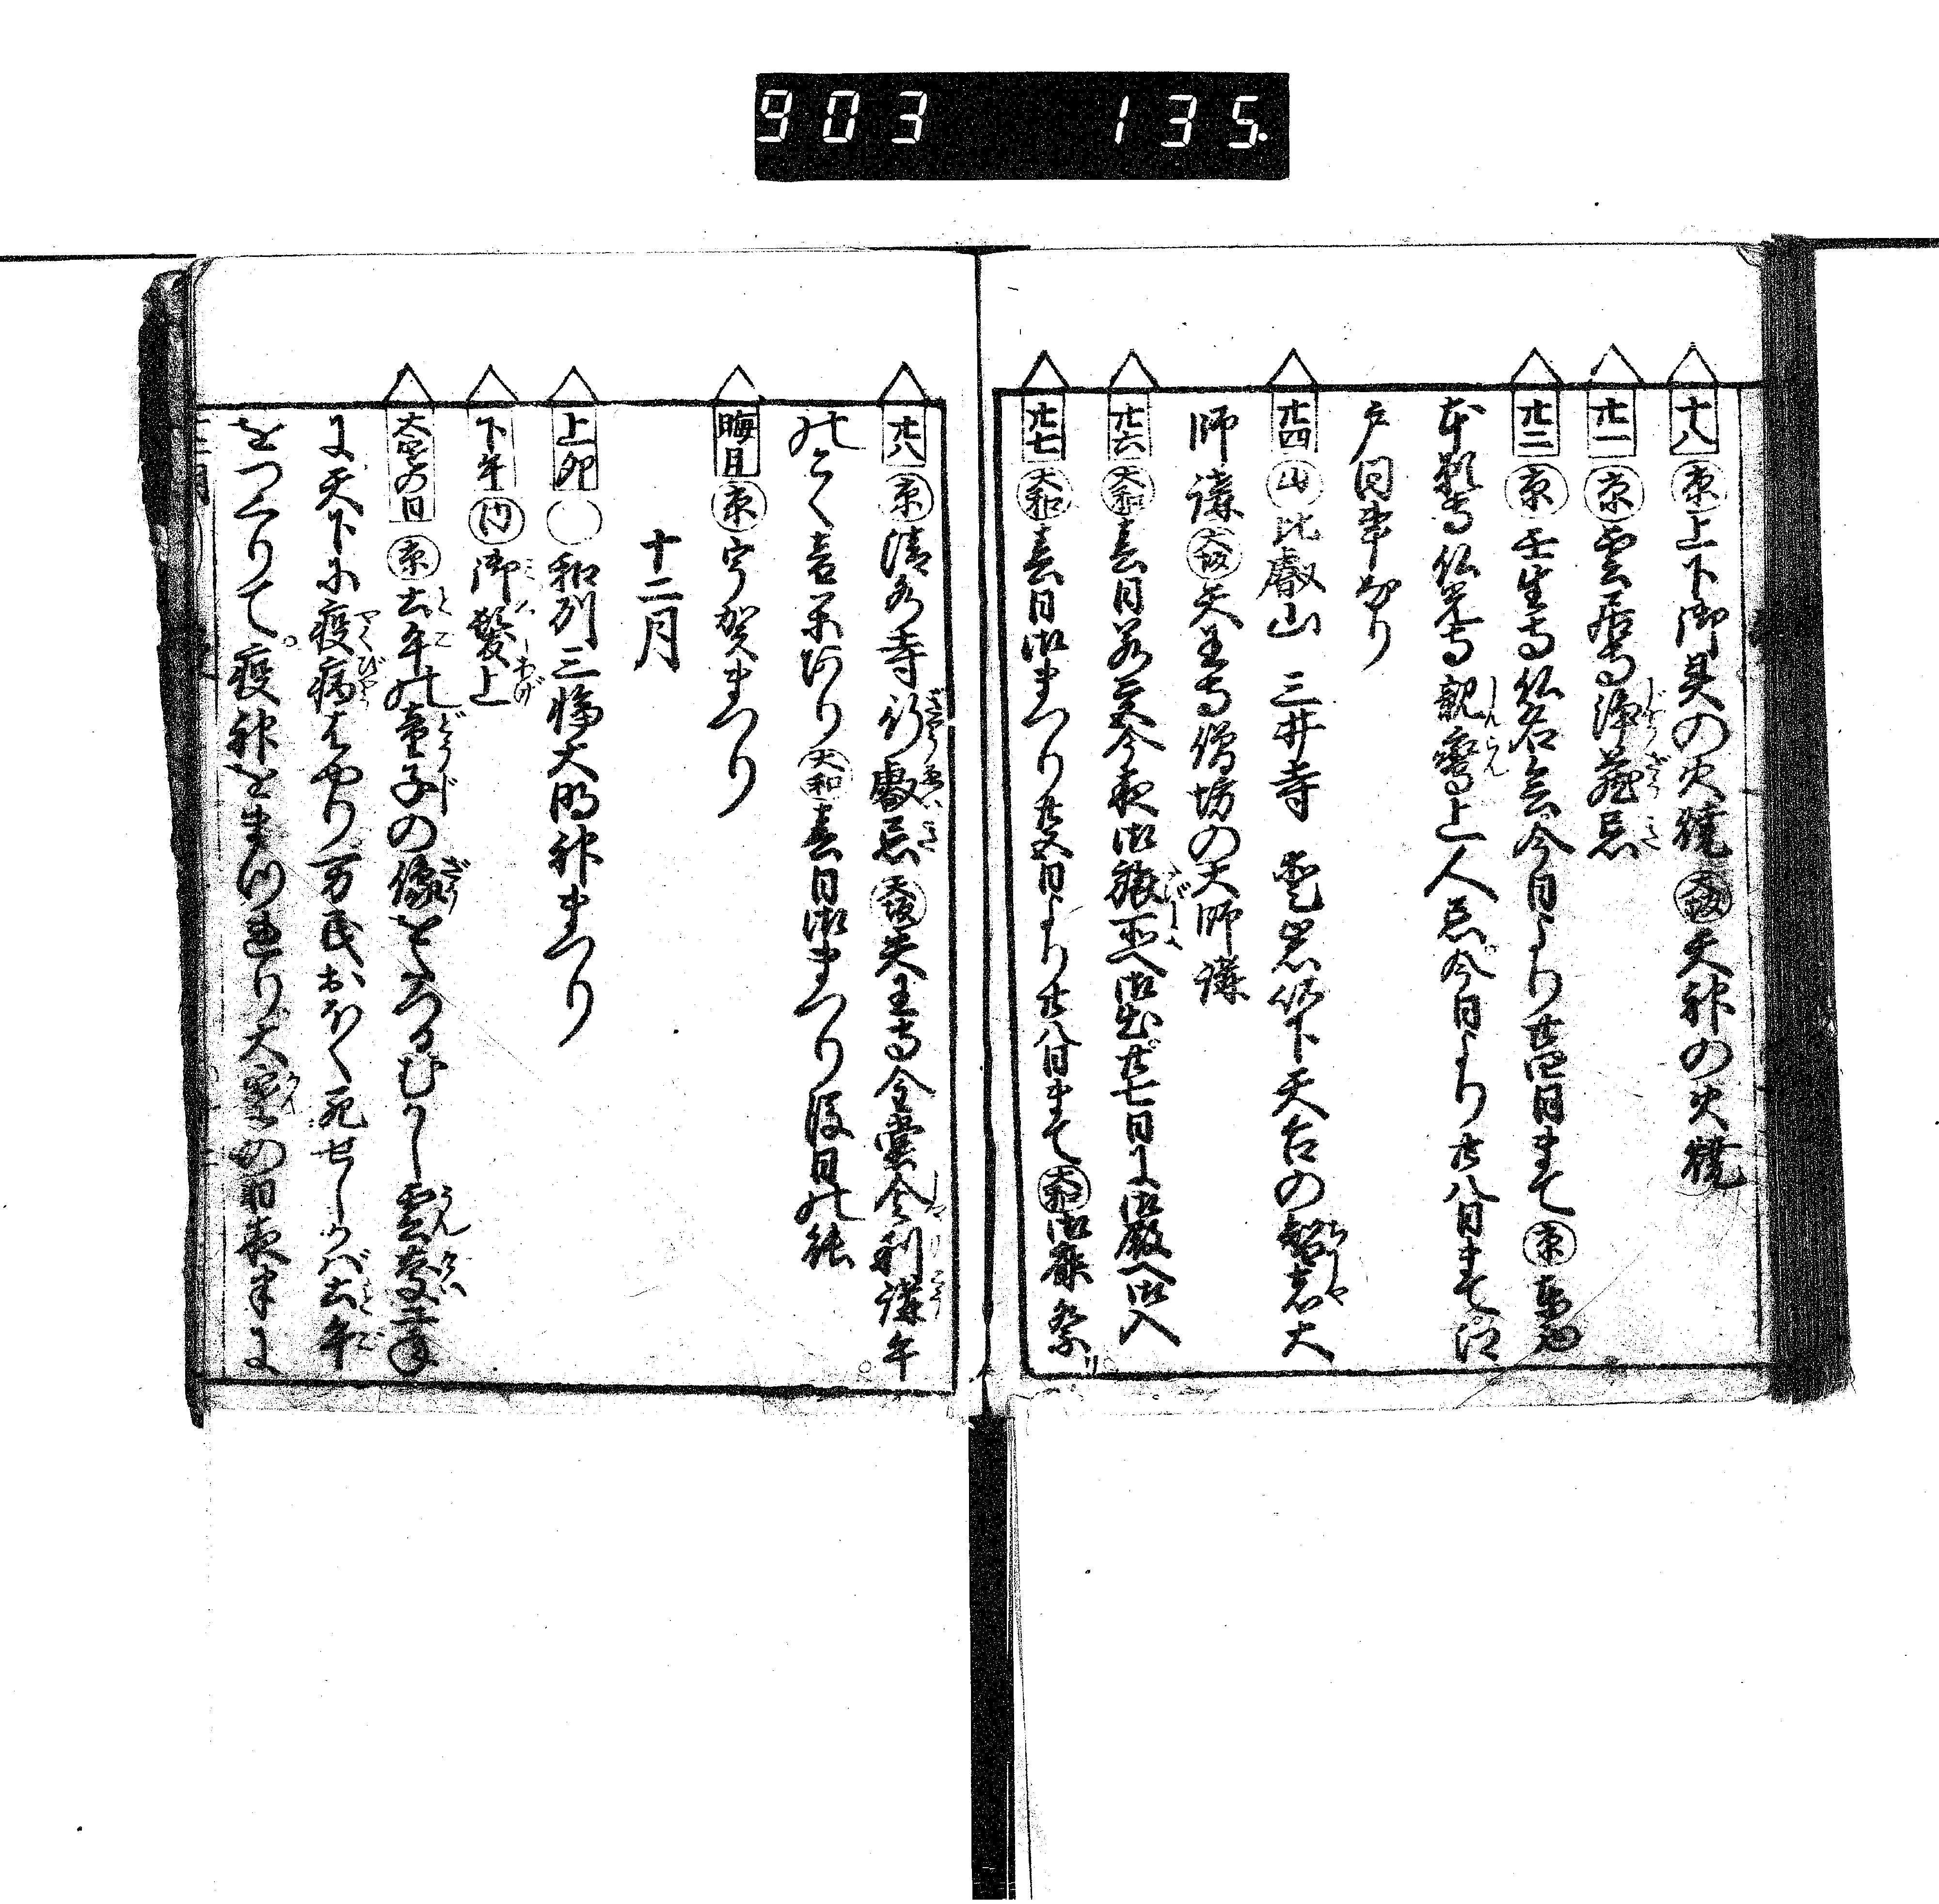 903 135.
十八 京 上下御具の火焼 大坂 天神の火焼
廿一 京 雲居寺浄蔵忌
廿二 京 壬生寺仏名会今日より廿四日まて 京 東西
本願寺仏光寺親鸞上人忌今日より廿八日まて江
戸同事なり
廿四 山 比叡山 三井寺 天台の智者大
師講 大坂 天王寺僧坊の大師講
廿六 大和 春日若宮今夜御旅所へ御出廿七日に御殿へ御入
廿七 大和 春日御まつり廿六日より廿八日まて 大和 御祭
廿八 京 清水寺行叡忌 大坂 天王寺金堂舎利講午
のこく音楽あり 大和 春日御まつり後日の能
晦日 京 宇賀まつり
十二月
上卯 和州三輪大明神まつり
下午 内 御髪上
大寒の日 京 土牛の童子の像をたつるむかし慶雲三年
に天下に疫病はやり万民おほく死せしかば土牛
をつくりて疫神をまつれり大寒の日夜半に